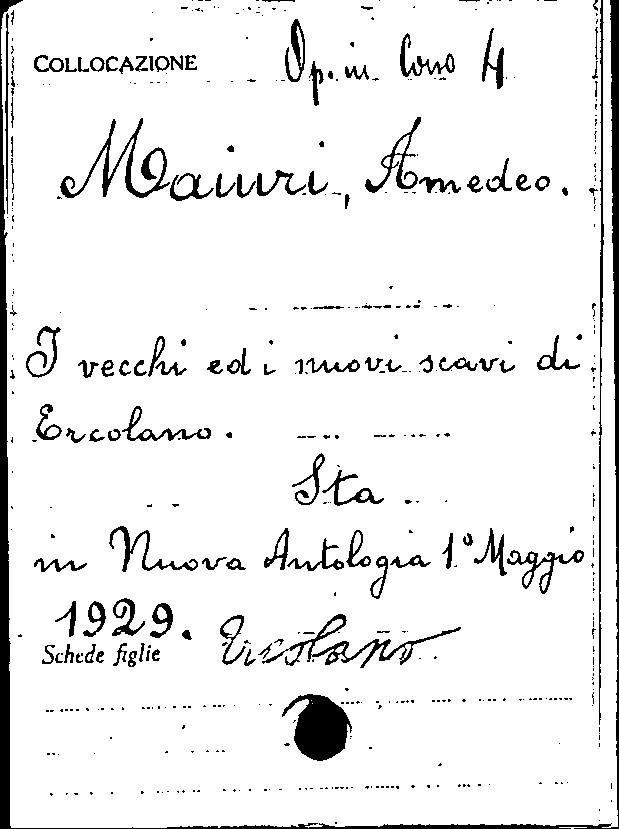 COLLOCAZIONE Op. in Corso 4
Maiuri, Amedeo.
I vecchi ed i nuovi scavi di
Ercolano.
Sta
in Nuova Antologia 1° Maggio
1929.
Schede figlie Ercolano